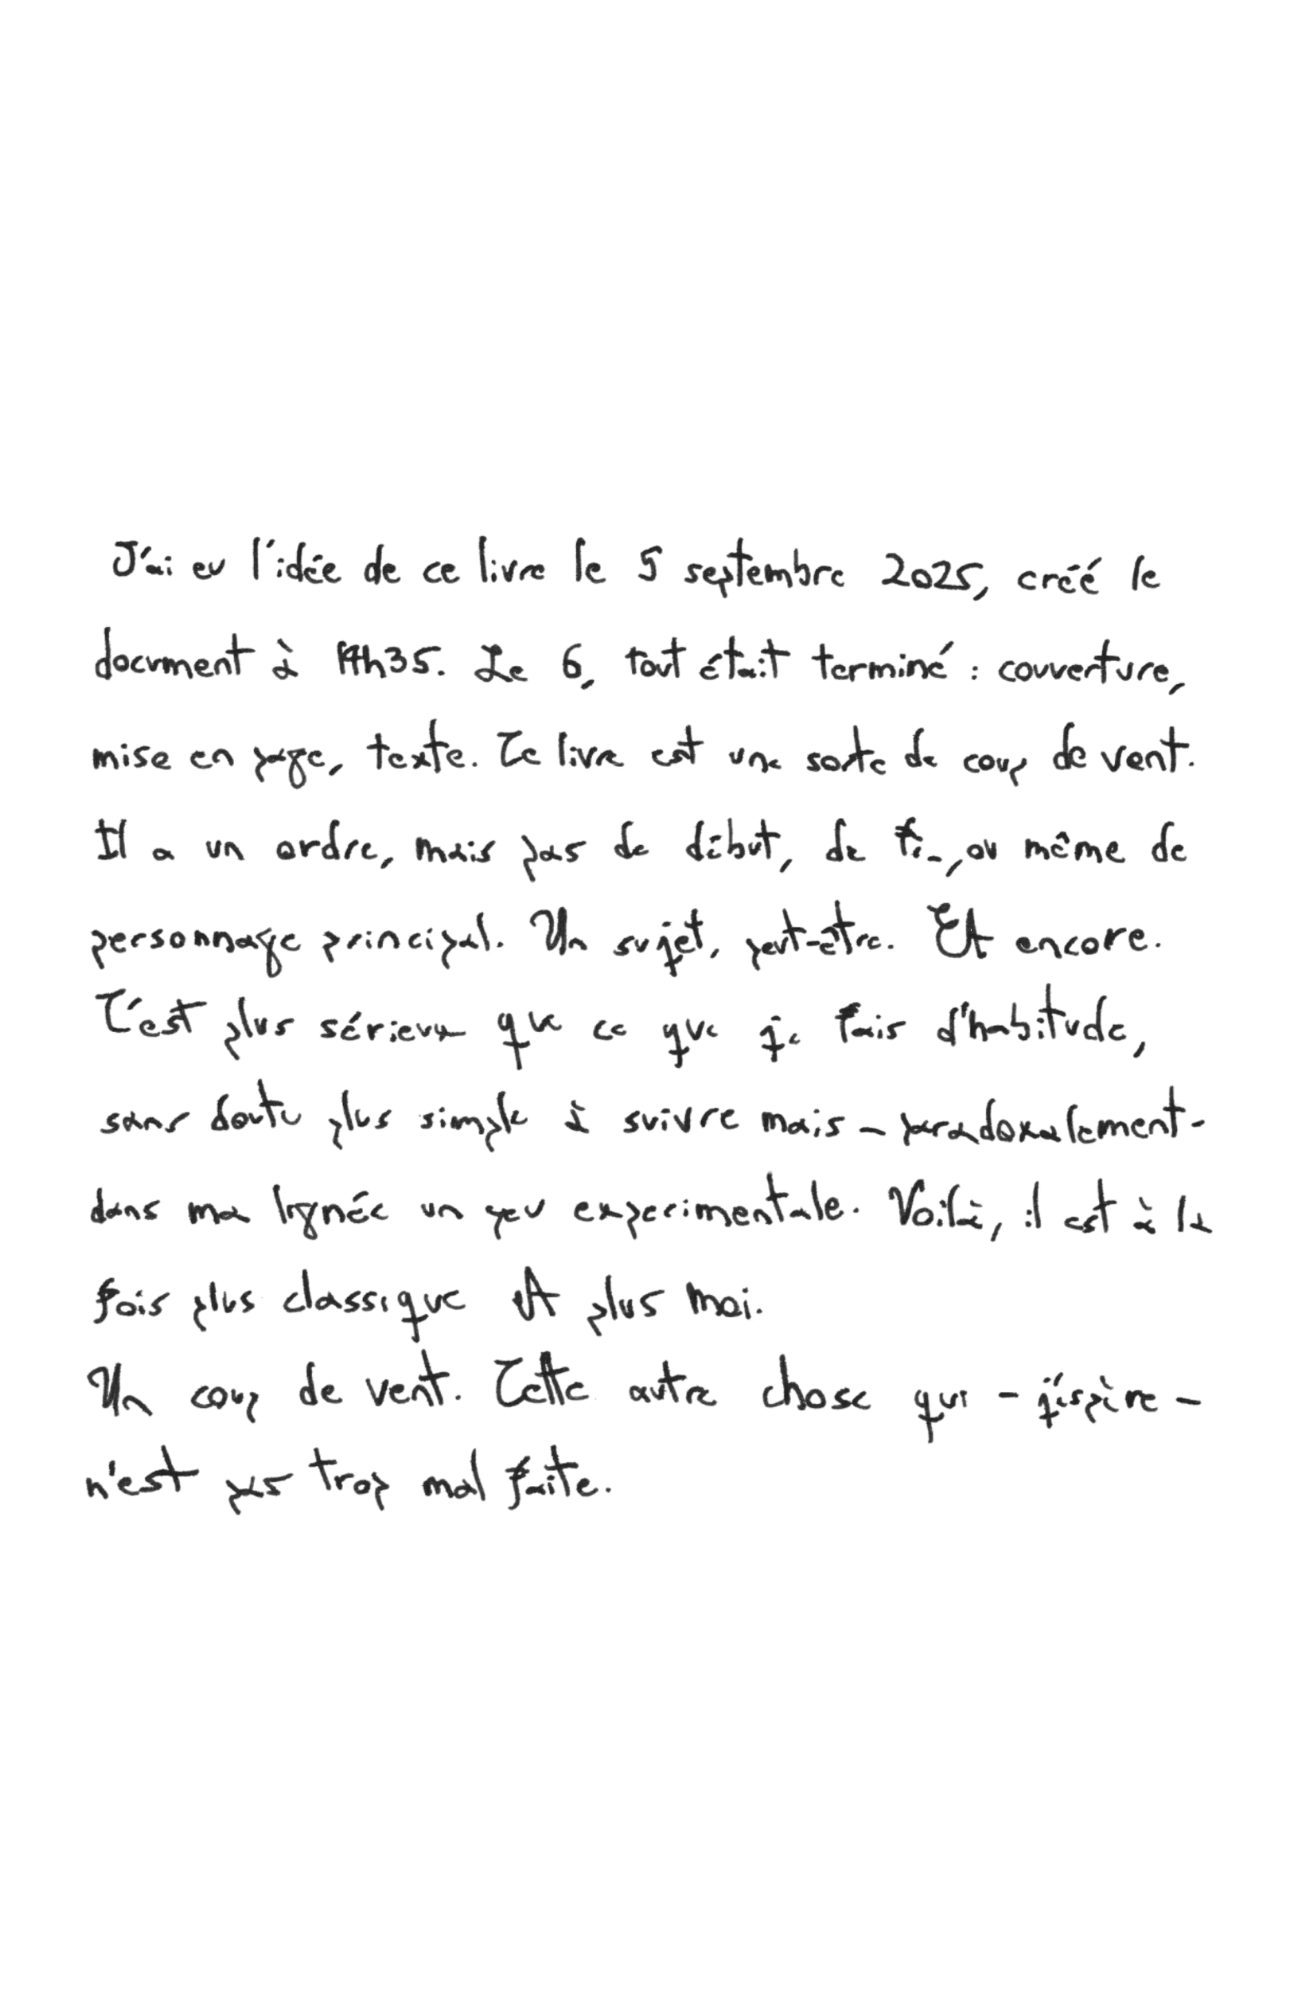 J'ai eu l'idée de ce livre le 5 septembre 2025, créé le
document à 14h35. Le 6, tout était terminé : couverture,
mise en page, texte. Ce livre est une sorte de coup de vent.
Il a un ordre, mais pas de début, de fin, ou même de
personnage principal. Un sujet, peut-être. Et encore.
C'est plus sérieux que ce que je fais d'habitude,
sans doute plus simple à suivre mais - paradoxalement -
dans ma lignée un peu experimentale. Voilà, il est à la
fois plus classique et plus moi.
Un coup de vent. Cette autre chose qui - j'espère -
n'est pas trop mal faite.